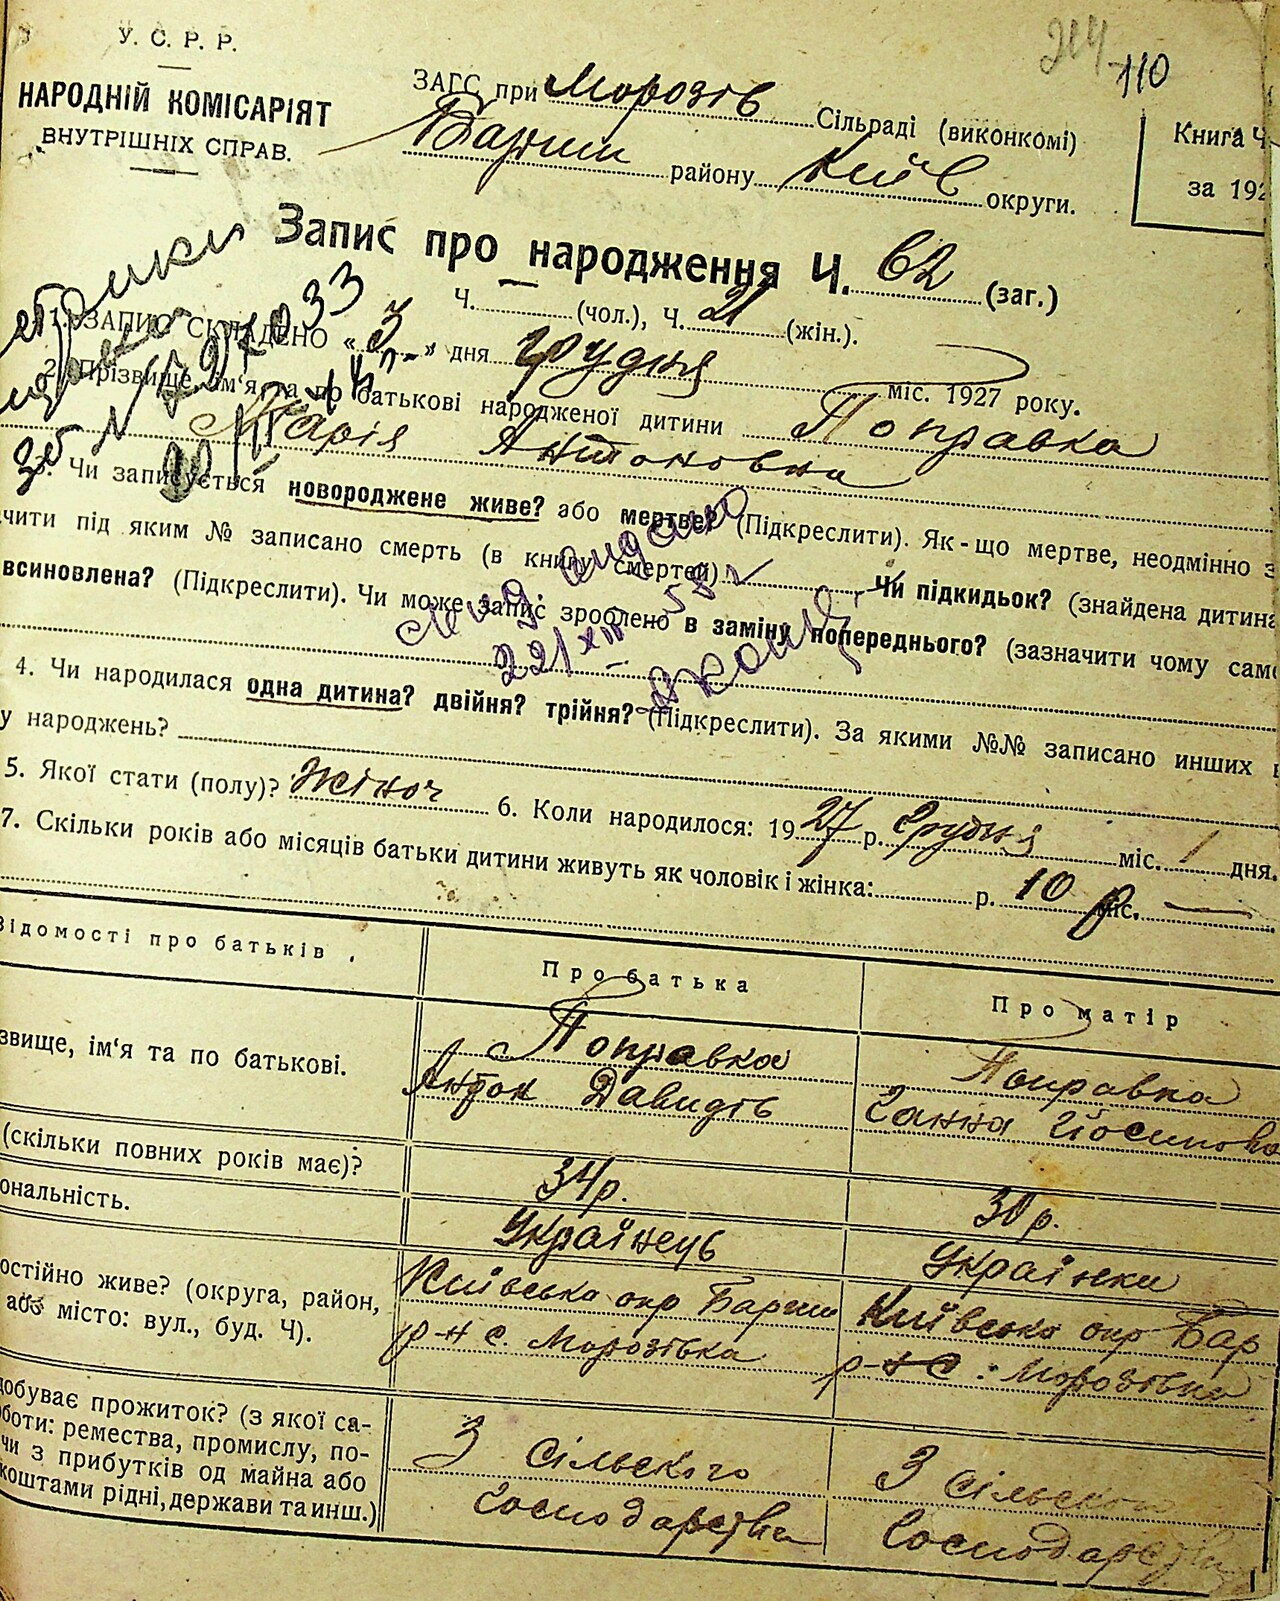 У. С. Р. Р.
НАРОДНІЙ КОМІСАРІЯТ
ВНУТРІШНІХ СПРАВ.
214
110
ЗАГС при Морозів Сільраді (виконкомі)
Бариш району Київ округи.
Книга Ч
за 192
Запис про народження Ч. 62 (заг.)
Ч. (чол.), Ч. 21 (жін.).
1. ЗАПИС СКЛАДЕНО « 3 » дня грудня міс. 1927 року.
2. Прізвище, ім'я та по батькові народженої дитини Поправка
Марія Антоновна
3. Чи записується новороджене живе? або мертве? (Підкреслити). Як-що мертве, неодмінно з
ачити під яким № записано смерть (в книгу смертей) Чи підкидьок? (знайдена дитина
всиновлена? (Підкреслити). Чи може запис зроблено в заміну попереднього? (зазначити чому саме
22/XII 58 г
4. Чи народилася одна дитина? двійня? трійня? (Підкреслити). За якими №№ записано инших
у народжень?
5. Якої стати (полу)? Жіноч 6. Коли народилося: 19 27 р. Грудня міс. 1 дня.
7. Скільки років або місяців батьки дитини живуть як чоловік і жінка: р. 10 р міс. —
Відомості про батьків. Про батька Про матір
звище, ім'я та по батькові. Поправка Поправка
Антон Давидів Ганна Йосиповна
(скільки повних років має)? 34 р. 30 р.
ональність. Українець Українка
остійно живе? (округа, район, Київсько окр Бариш Київсько окр Бар
або місто: вул., буд. Ч). р-н с. Морозівка р-н с. Морозівка
добуває прожиток? (з якої са-
боти: ремества, промислу, по- З сільского З сільского
чи з прибутків од майна або
коштами рідні, держави та инш.) Господарства Господарства